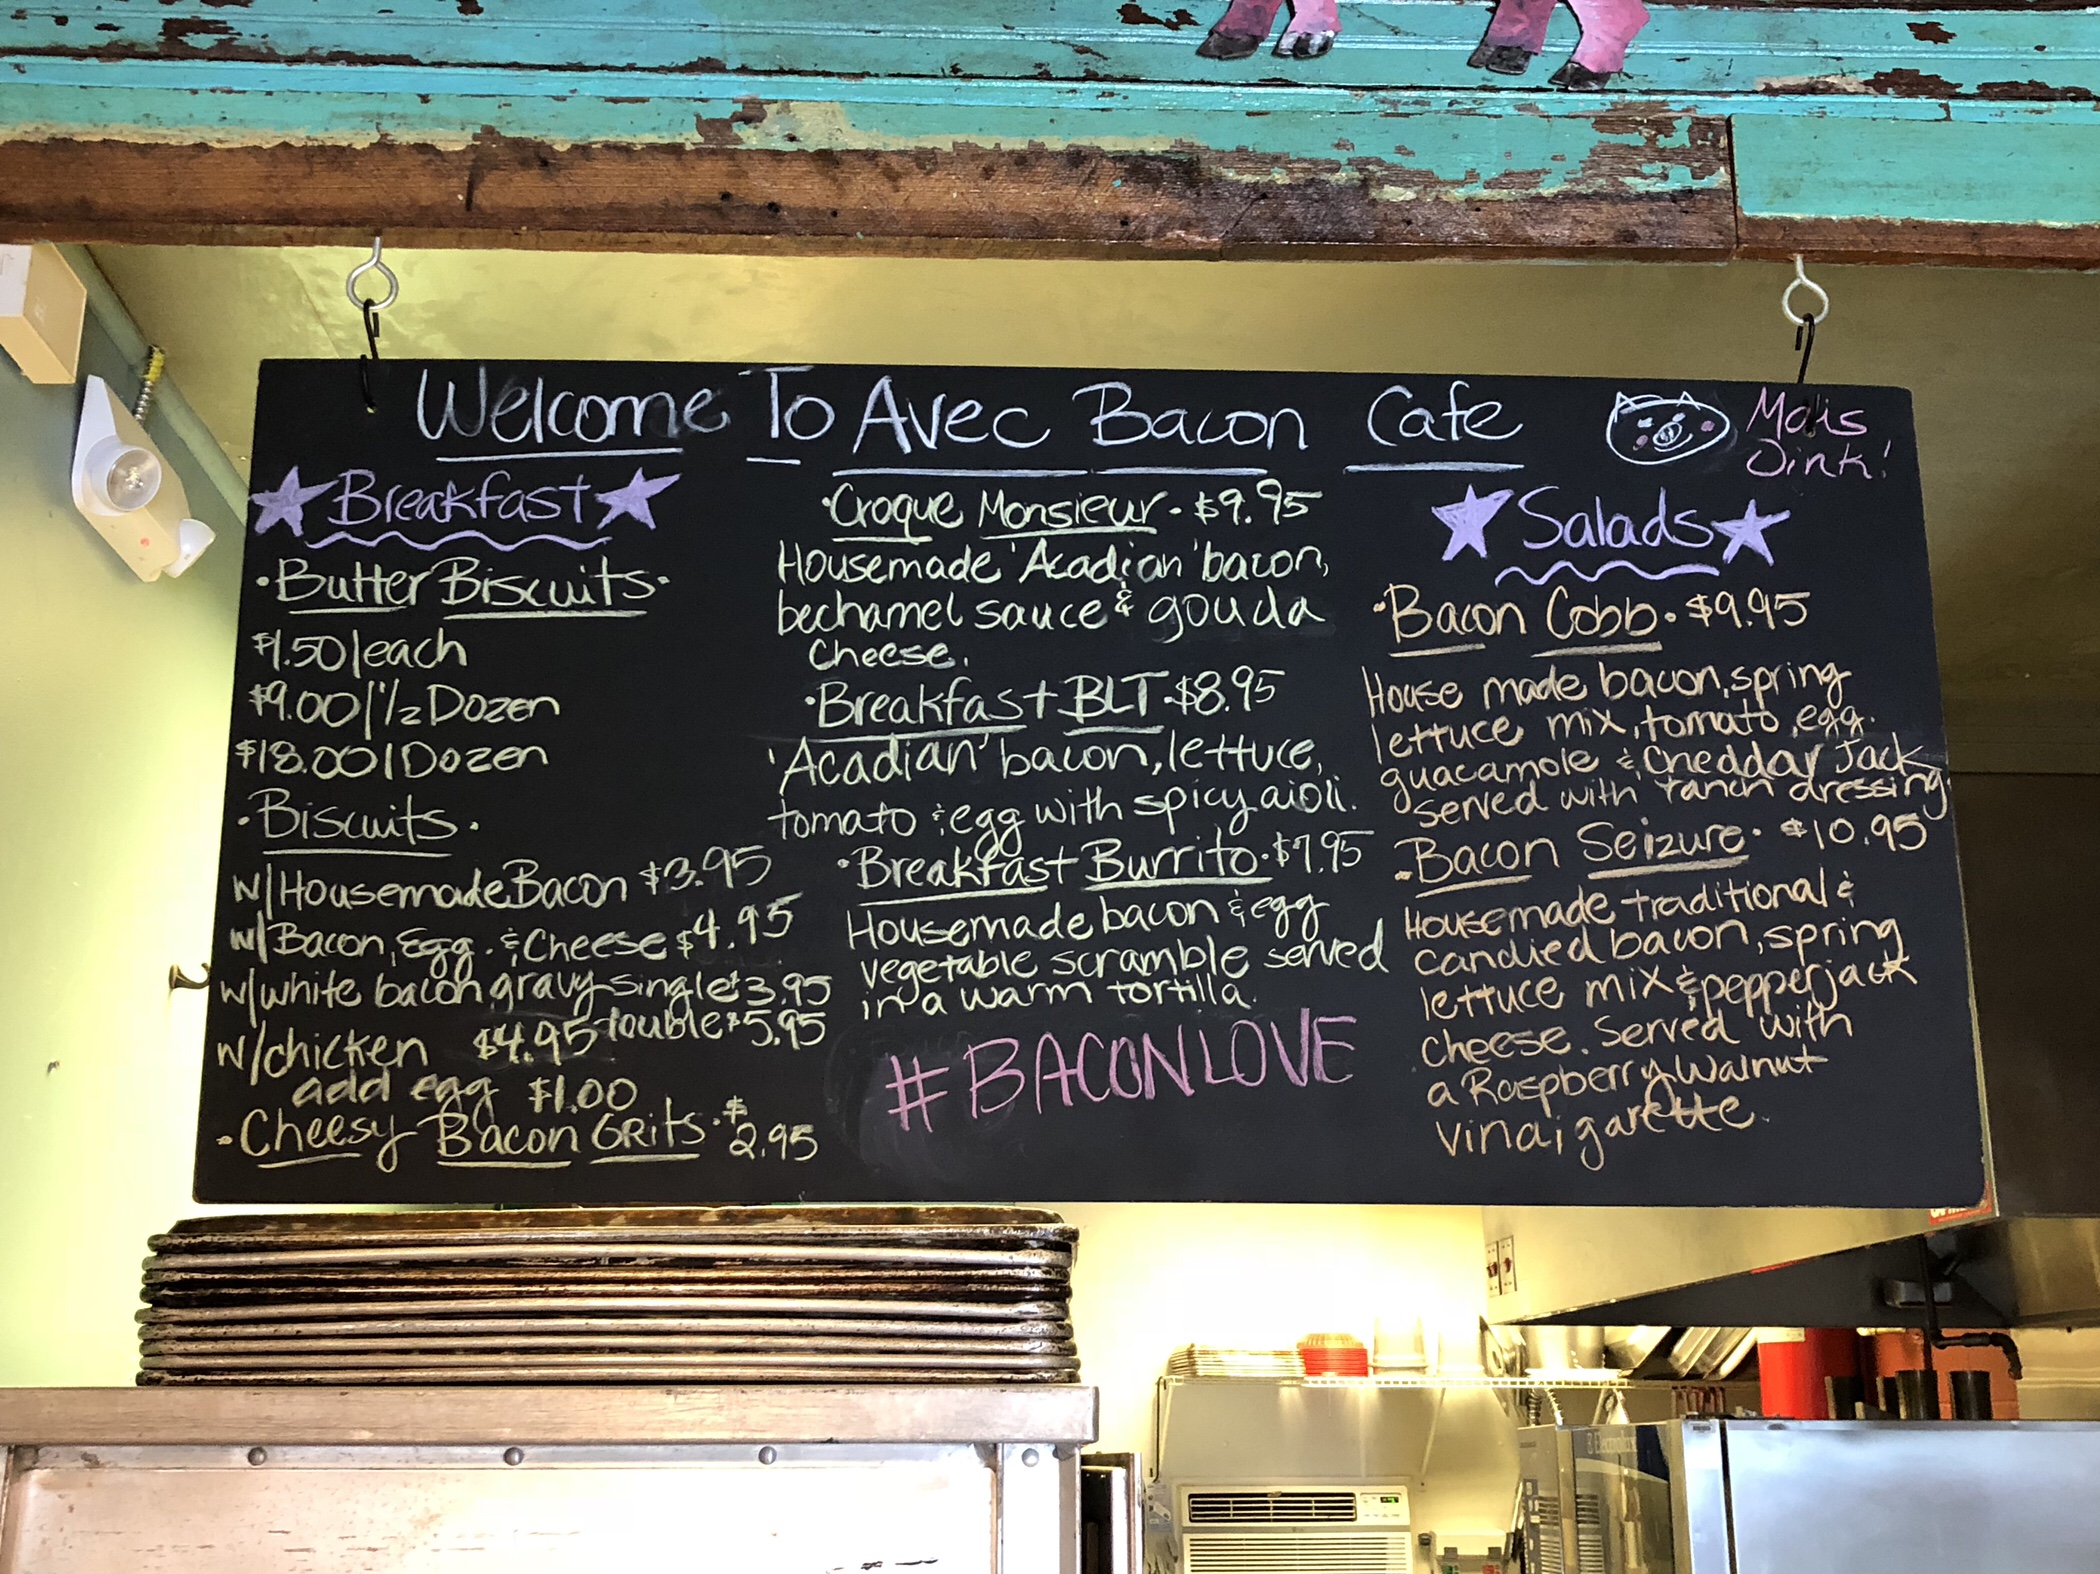 Welcome To Avec Bacon Cafe
Mais
Oink!
Breakfast
·Butter Biscuits·
$1.50/each
$9.00/1/2 Dozen
$18.00/Dozen
·Biscuits·
w/Housemade Bacon $3.95
w/Bacon, Egg. & Cheese $4.95
w/white bacon gravy-single $3.95
double $5.95
w/chicken $4.95
add egg $1.00
·Cheesy Bacon GRits· $2.95
·Croque Monsieur· $9.95
Housemade 'Acadian' bacon,
bechamel sauce & gouda
Cheese.
·Breakfast BLT·$8.95
'Acadian' bacon, lettuce,
tomato & egg with spicy aioli.
·Breakfast Burrito·$7.95
Housemade bacon & egg
vegetable scramble served
in a warm tortilla.
#BACONLOVE
Salads
·Bacon Cobb· $9.95
House made bacon, spring
lettuce mix, tomato, egg.
guacamole & Cheddar Jack
served with ranch dressing.
·Bacon Seizure· $10.95
Housemade traditional &
candied bacon, spring
lettuce mix & pepperjack
cheese. Served with
a Raspberry Walnut
vinaigarette.
Electrolux